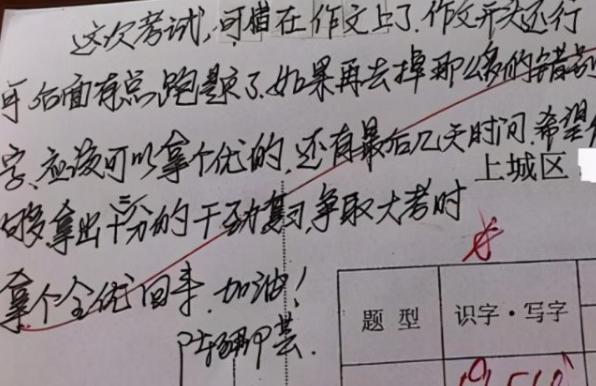 这次考试,可惜在作文上了.作文开头还行
可后面有点跑题了.如果再去掉那么多的错别
字,应该可以拿个优的.还有最后几天时间.希望你
上城区
够拿出十二分的干劲复习,争取大考时
拿个全优回来.加油!
题 型
识字·写字